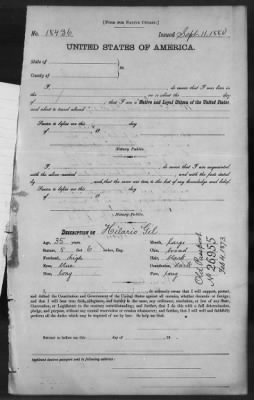 [FORM FOR NATIVE CITIZEN.]
No. 18436 Issued Sept. 11. 1880
UNITED STATES OF AMERICA.
State of
County of
I, do swear that I was born in
on or about the day
of that I am a Native and Loyal Citizen of the United States
and about to travel abroad
Sworn to before me, this day
of 18
Notary Public.
I, do swear that I am acquainted
with the above-named and with the facts stated
by and that the same are true to the best of my knowledge and belief.
Sworn to before me, this day
of 18
Notary Public.
DESCRIPTION OF Hilario Gil
Age, 35 years. Mouth, Large
Stature, 5 feet 6 inches, Eng. Chin, round
Forehead, high Hair, black
Eyes, Blue Complexion, dark
Nose, Long Face, long
Old Passport
No 26955
I, do solemnly swear that I will support, protect,
and defend the Constitution and Government of the United States against all enemies, whether domestic or foreign;
and that I will bear true faith, allegiance, and loyalty to the same, any ordinance, resolution, or law of any State,
Convention, or Legislature to the contrary notwithstanding; and further, that I do this with a full determination,
pledge, and purpose, without any mental reservation or evasion whatsoever; and further, that I will well and faithfully
perform all the duties which may be required of me by law: So help me God.
Sworn to before me, this day of 18
Applicant desires passport sent to following address: